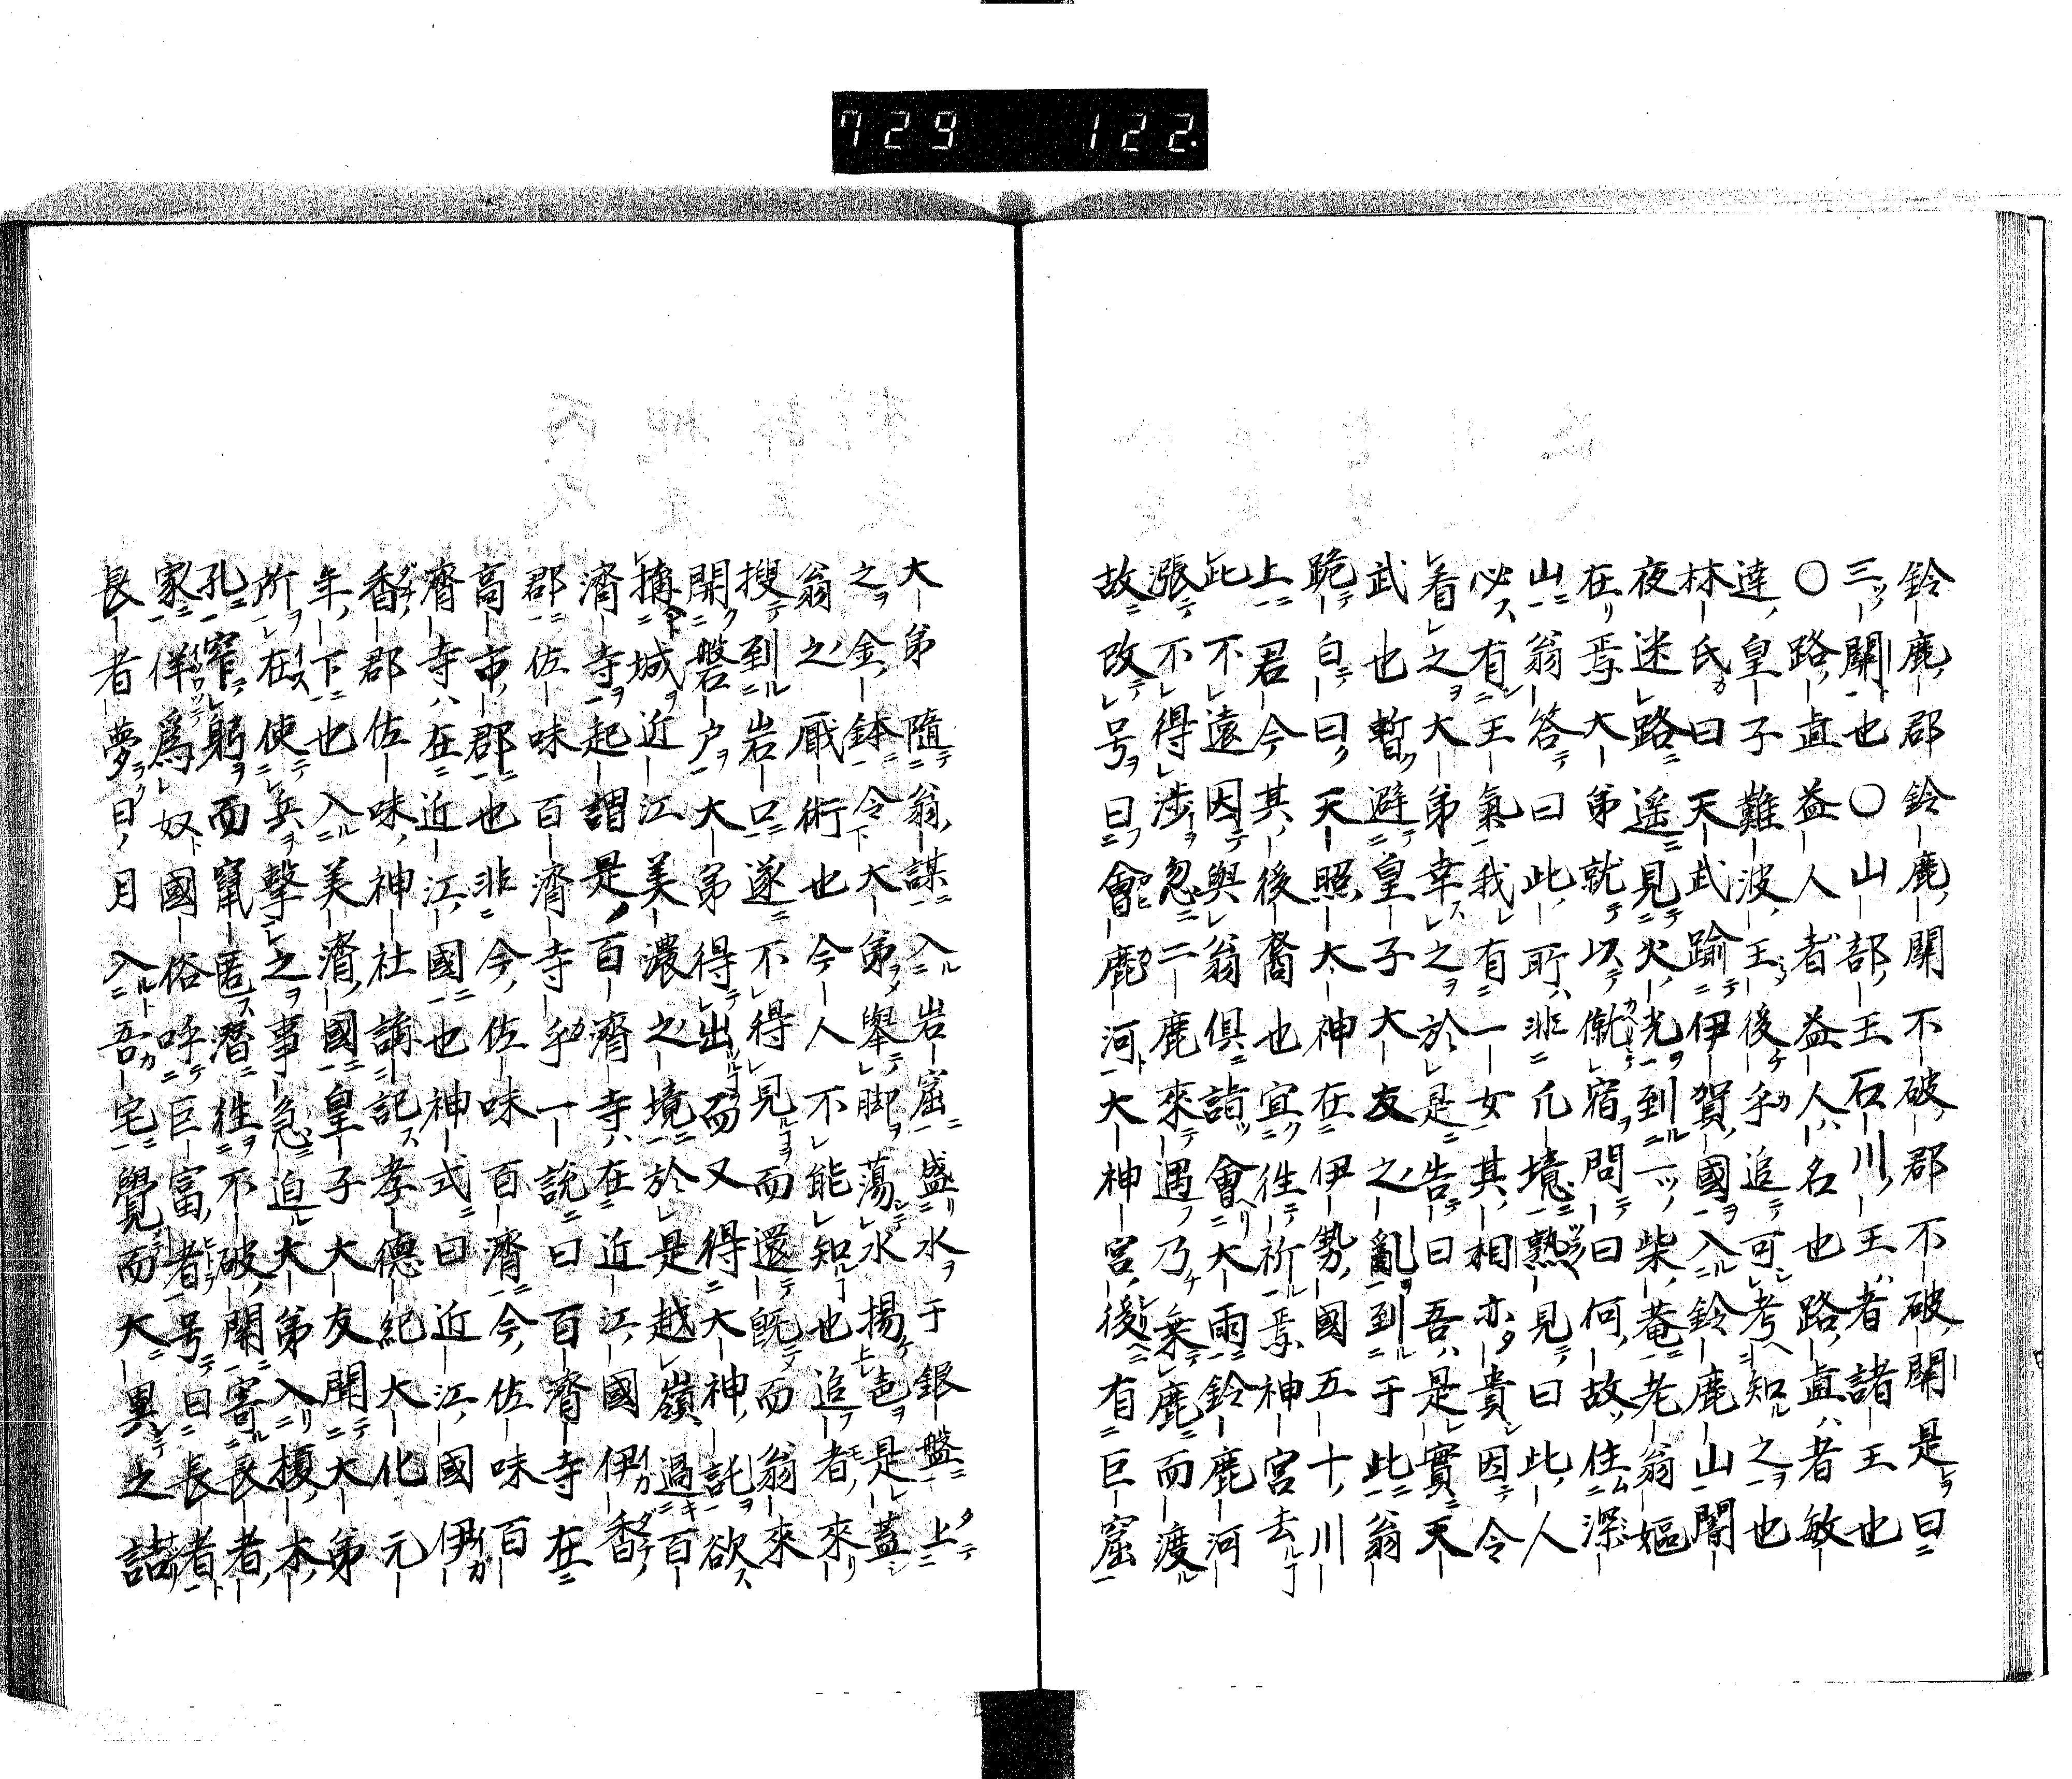 729 122.
鈴鹿郡鈴鹿關不破郡不破關是曰
三關也〇山部王石川王者諸王也
〇路直益人者益人名也路直者敏
達皇子難波王後乎追可考知之也
林氏曰天武踰伊賀國入鈴鹿山闇
夜迷路遥見火光到一柴菴老翁嫗
在焉大弟就以僦宿問曰何故住深
山翁答曰此所非凡境熟見曰此人
必有王氣我有一女其相亦貴因令
看之大弟幸之於是告曰吾是實天
武也暫避皇子大友之亂到于此翁
跪白曰天照太神在伊勢國五十川
上君今其後裔也宜往祈焉神宮去
此不遠因與翁俱詣會大雨鈴鹿河
漲不得渉忽二鹿來遇乃乗鹿而渡
故改号曰會鹿河大神宮後有巨窟
大弟隨翁謀入岩窟盛水于銀盤上
之金鉢令大弟擧脚蕩水揚邑是蓋
翁之厭術也今人不能知也追者來
搜到岩口遂不得見而還既而翁來
開磐戸大弟得出而又得大神託欲
搆城近江美濃之境於是越嶺過百
濟寺起謂是百濟寺在近江國伊香
郡佐味百濟寺乎一説曰百濟寺在
高市郡也非今佐味百濟今佐味百
齊寺在近江國也神式曰近江國伊
香郡佐味神社講記孝德紀大化元
年下也入美濟國皇子大友聞大弟
所在使兵擊之事急迫大弟入榎木
孔窄躬而竄匿潛往不破關寄長者
家佯爲奴國俗呼巨富者号曰長者
長者夢日月入吾宅覺而大異之詰